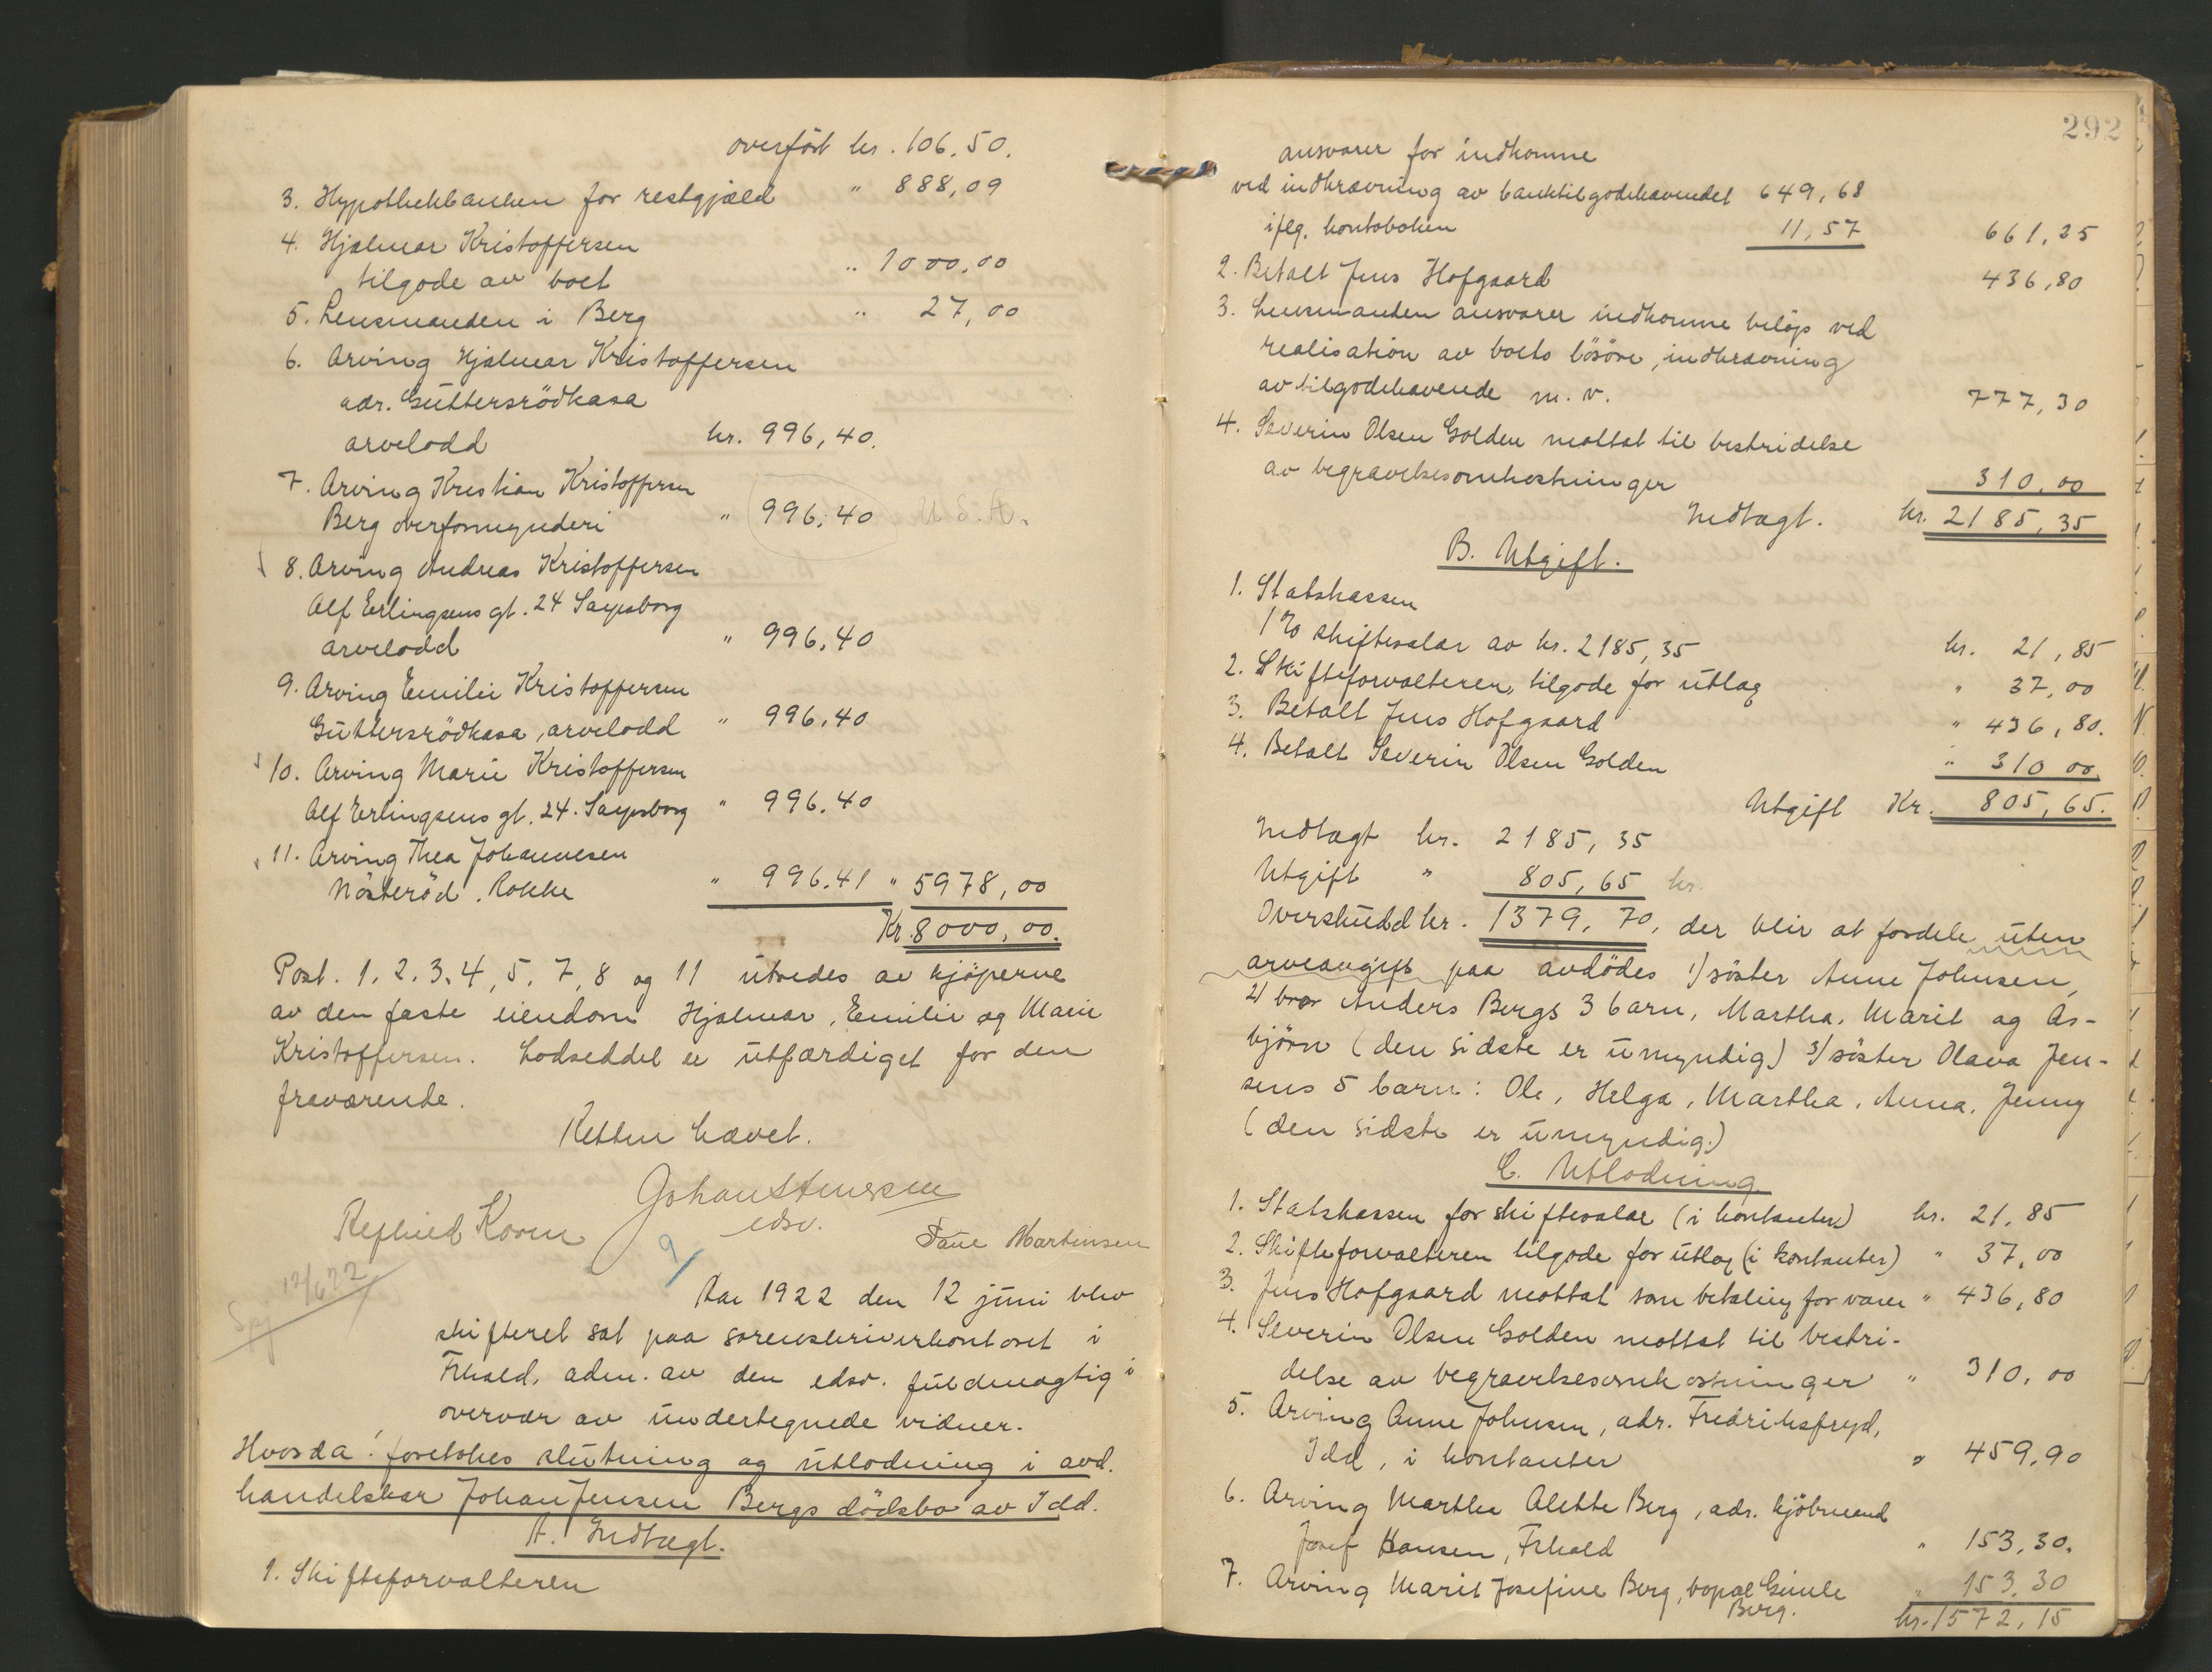 overført kr. 106,50.
3. Hypothekbanken for restgjæld " 888,09
4. Hjalmar Kristoffersen
tilgode av boet " 1000,00
5. Lensmanden i Berg " 27,00
6. Arving Hjalmar Kristoffersen
adr. Guttersrödkasa
arvelodd kr. 996,40.
7. Arving Kristian Kristoffersen
Berg overformynderi " 996,40 U.S.A.
8. Arving Andreas Kristoffersen
Alf Erlingsens gt. 24 Sarpsborg
arvelodd " 996,40
9. Arving Emilie Kristoffersen
Guttersrödkasa, arvelodd " 996,40
10. Arving Marie Kristoffersen
Alf Erlingsens gt. 24. Sarpsborg " 996,40
11. Arving Thea Johannesen
Nösteröd, Rokke " 996.41 " 5978,00
Kr. 8000,00.
Post. 1, 2, 3, 4, 5, 7, 8 og 11 utredes av kjöperne
av den faste eiendom Hjalmar, Emilie og Marie
Kristoffersen. Lodseddel er utfærdiget for den
fraværende.
Retten hævet.
Johan Stenersen
edsv.
Koren
Martinsen
12/6 22
9/
Aar 1922 den 12 juni blev
skifteret sat paa sorenskriverkontoret i
Frhald, adm. av den edsv. fuldmægtig i
overvær av undertegnede vidner.
Hvorda! foretokes slutning og utlodning i avd.
handelskar Johan Jensen Bergs dödsbo av Idd.
A. Indtægt.
1. Skifteforvalteren
292
ansvarer for indkomne
ved indkrævning av banktilgodehavendet 649,68
iflg. kontoboken 11,57 661,25
2. Betalt Jens Hofgaard 436,80
3. Lensmanden ansvarer indkomne belöp ved
realisation av boets lösöre, indkrævning
av tilgodehavende m.v. 777,30
4. Severin Olsen Golden mottat til bestridelse
av begravelsesomkostninger 310,00
Indtægt. kr. 2185,35
B. Utgift.
1. Statskassen
1% skiftesalær av kr. 2185,35 kr. 21,85
2. Skifteforvalteren, tilgode for utlæg " 37,00
3. Betalt Jens Hofgaard " 436,80.
4. Betalt Severin Olsen Golden " 310 00.
Utgift Kr. 805,65.
Indtægt kr. 2185,35
Utgift " 805,65 kr.
Overskudd kr. 1379,70, der blir at fordele uten
arveavgift paa avdödes 1/ söster Anne Johnsen,
2/ bror Anders Bergs 3 barn, Martha, Marit og As-
björn (den sidste er umyndig) 3/ söster Olava Jen-
sens 5 barn: Ole, Helga, Martha, Anna, Jenny
(den sidste er umyndig.)
C. Utlodning
1. Statskassen for skiftesalær (i kontanter) kr. 21,85
2. Skifteforvalteren tilgode for utlæg (i kontanter) " 37,00
3. Jens Hofgaard mottat som betaling for varer " 436,80
4. Severin Olsen Golden mottat til bestri-
delse av begravelsesomkostninger " 310,00
5. Arving Anne Johnsen, adr. Fredriksfryd,
Idd, i kontanter " 459,90
6. Arving Martha Alette Berg, adr. kjöbmand
Josef Hansen, Frhald " 153,30.
7. Arving Marit Josefine Berg, bopæl Gimle
Berg. " 153,30
kr. 1572,15